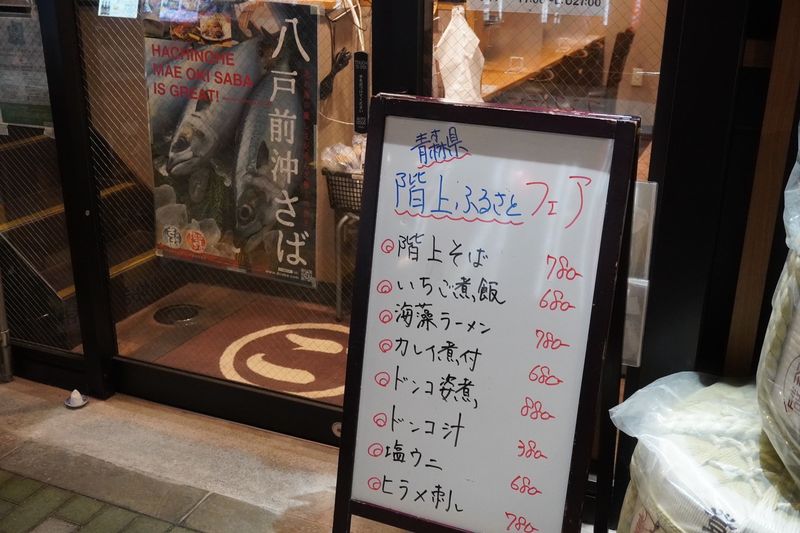 HACHINOHE
MAE OKI SABA
IS GREAT!
八戸前沖さば
青森県
階上ふるさとフェア
◎階上そば 780-
◎いちご煮飯 680-
◎海藻ラーメン 780-
◎カレイ煮付 680-
◎ドンコ姿煮 880-
◎ドンコ汁 380-
◎塩ウニ 680-
◎ヒラメ刺し 780-